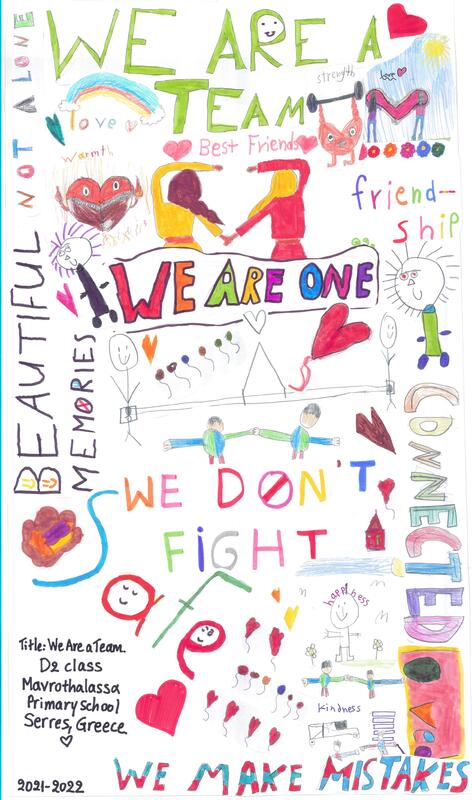 WE ARE A
TEAM
NOT ALONE
love
strength
love
Best Friends
warmth
friend-
ship
WE ARE ONE
BEAUTIFUL
MEMORIES
CONNECTED
WE DON'T
FiGHT
Safe
happiness
kindness
Title: We Are a Team.
D2 class
Mavrothalassa
Primary School
Serres, Greece.
2021-2022
WE MAKE MISTAKES